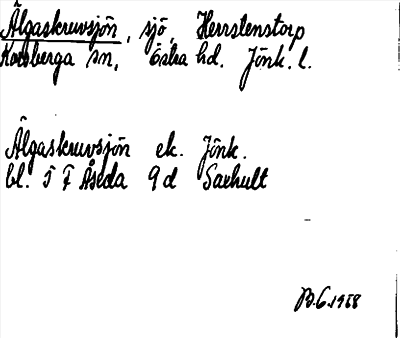 Älgaskruvsjön, sjö, Herrstenstorp
Korsberga sn, Östra hd. Jönk. l.
Älgaskruvsjön ek. Jönk.
bl. 5 F Åseda 9 d Saxhult
B.G.1968